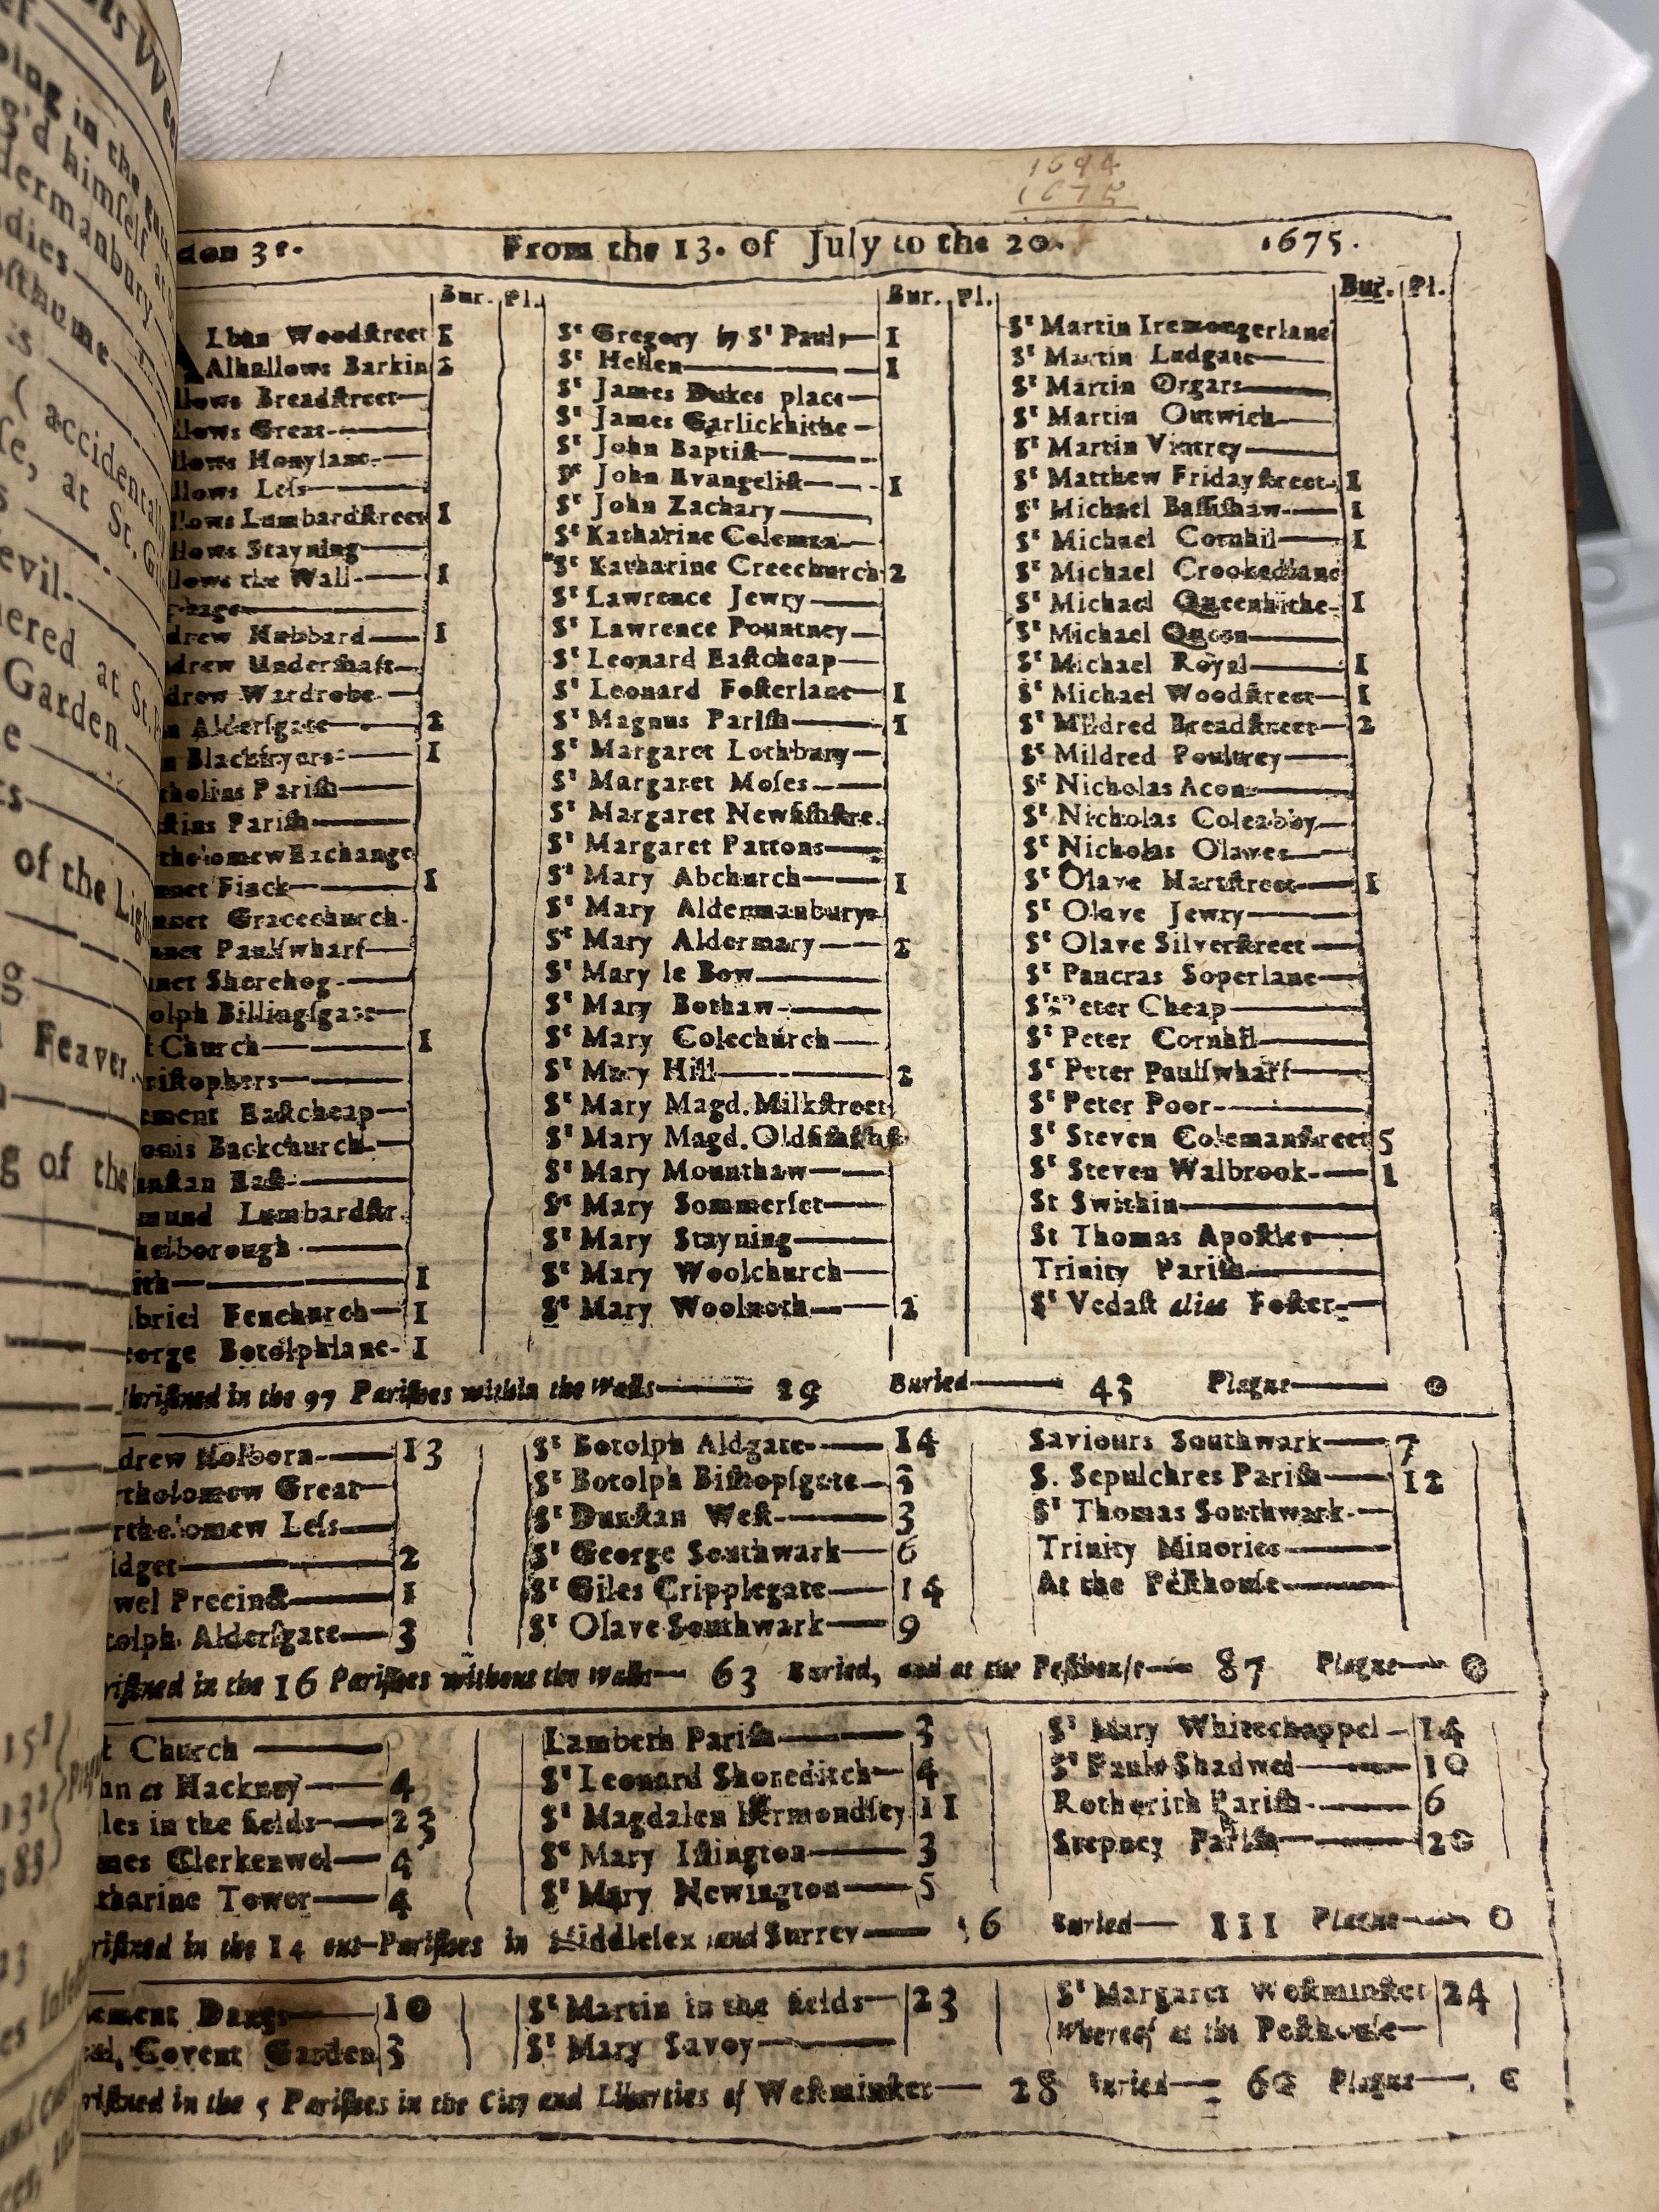 1644
1675
don 31. From the 13. of July to the 20. 1675.
Bur. Pl.
Lban Woodſtreet 1
Alhallows Barkin 2
llows Breadſtreet
llows Great
llows Honylane
llows Leſs
llows Lumbardſtreet 1
llows Stayning
llows the Wall 1
phage
drew Hubbard 1
drew Underſhaft
drew Wardrobe
n Alderſgate 2
n Blackfryers 1
tholins Pariſh
ſtins Pariſh
tholomew Exchange
nnet Finck 1
nnet Gracechurch
nnet Paulſwharf
nnet Sherehog
olph Billingſgate
t Church 1
riſtophers
ement Eaſtcheap
onis Backchurch
unſtan Eaſt
mund Lumbardſtr.
helborough
ith 1
briel Fenchurch 1
eorge Botolphlane 1
Bur. Pl.
Sᵗ Gregory by Sᵗ Pauls 1
Sᵗ Hellen 1
Sᵗ James Dukes place
Sᵗ James Garlickhithe
Sᵗ John Baptiſt
Sᵗ John Evangeliſt 1
Sᵗ John Zachary
Sᵗ Katharine Coleman
Sᵗ Katharine Creechurch 2
Sᵗ Lawrence Jewry
Sᵗ Lawrence Pountney
Sᵗ Leonard Eaſtcheap
Sᵗ Leonard Foſterlane 1
Sᵗ Magnus Pariſh 1
Sᵗ Margaret Lothbury
Sᵗ Margaret Moſes
Sᵗ Margaret Newfiſhſtre.
Sᵗ Margaret Pattons
Sᵗ Mary Abchurch 1
Sᵗ Mary Aldermanbury
Sᵗ Mary Aldermary 2
Sᵗ Mary le Bow
Sᵗ Mary Bothaw
Sᵗ Mary Colechurch
Sᵗ Mary Hill 2
Sᵗ Mary Magd. Milkſtreet
Sᵗ Mary Magd. Oldfiſhſtr
Sᵗ Mary Mounthaw
Sᵗ Mary Sommerſet
Sᵗ Mary Stayning
Sᵗ Mary Woolchurch
Sᵗ Mary Woolnoth 2
Bur. Pl.
Sᵗ Martin Iremongerlane
Sᵗ Martin Ludgate
Sᵗ Martin Orgars
Sᵗ Martin Outwich
Sᵗ Martin Vintrey
Sᵗ Matthew Fridayſtreet 1
Sᵗ Michael Baſſiſhaw 1
Sᵗ Michael Cornhil 1
Sᵗ Michael Crookedlane
Sᵗ Michael Queenhithe 1
Sᵗ Michael Queen
Sᵗ Michael Royal 1
Sᵗ Michael Woodſtreet 1
Sᵗ Mildred Breadſtreet 2
Sᵗ Mildred Poultrey
Sᵗ Nicholas Acons
Sᵗ Nicholas Coleabby
Sᵗ Nicholas Olaves
Sᵗ Olave Hartſtreet 1
Sᵗ Olave Jewry
Sᵗ Olave Silverſtreet
Sᵗ Pancras Soperlane
Sᵗ Peter Cheap
Sᵗ Peter Cornhil
Sᵗ Peter Paulſwharf
Sᵗ Peter Poor
Sᵗ Steven Colemanſtreet 5
Sᵗ Steven Walbrook 1
St Swithin
St Thomas Apoſtles
Trinity Pariſh
Sᵗ Vedaſt alias Foſter
hriſtned in the 97 Pariſhes within the Walls 29 Buried 43 Plague 0
drew Holborn 13
rtholomew Great
rtholomew Leſs
idget 2
wel Precinct 1
tolph Alderſgate 3
Sᵗ Botolph Aldgate 14
Sᵗ Botolph Biſhopſgate
Sᵗ Dunſtan Weſt 3
Sᵗ George Southwark 6
Sᵗ Giles Cripplegate 14
Sᵗ Olave Southwark 9
Saviours Southwark 7
S. Sepulchres Pariſh 12
Sᵗ Thomas Southwark
Trinity Minories
At the Peſthouſe
riſtned in the 16 Pariſhes without the Walls 63 Buried, and at the Peſthouſe 87 Plague 0
t Church
hn at Hackney 4
les in the fields 23
mes Clerkenwel 4
tharine Tower 4
Lambeth Pariſh 3
Sᵗ Leonard Shoreditch 4
Sᵗ Magdalen Bermondſey 11
Sᵗ Mary Iſlington 3
Sᵗ Mary Newington 5
Sᵗ Mary Whitechappel 14
Sᵗ Pauls Shadwel 10
Rotherith Pariſh 6
Stepney Pariſh 20
riſtned in the 14 out-Pariſhes in Middleſex and Surrey 6 Buried 111 Plague 0
lement Danes 10
aul, Covent Garden 3
Sᵗ Martin in the fields 23
Sᵗ Mary Savoy
Sᵗ Margaret Weſtminſter 24
Whereof at the Peſthouſe
riſtned in the 5 Pariſhes in the City and Liberties of Weſtminſter 28 Buried 60 Plague 0
ping in the
g'd himſelf at
dermanbury
dies
oſthume
( accidentally
ſe, at St.
evil
ered at St.
Garden
of the
Feaver
g of the